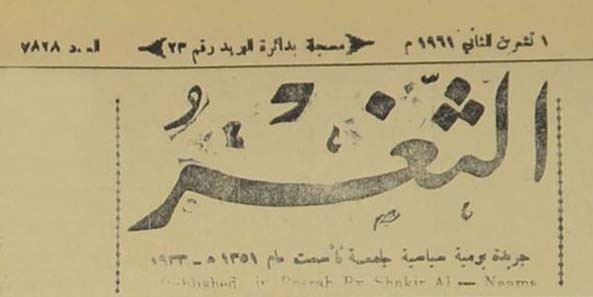 ١ تشرين الثاني ١٩٦١ م مسجلة بدائرة البريد رقم ٢٣ العدد ٧٨٢٨
الثَّغرُ
جريدة يومية سياسية جامعة تأسست عام ١٣٥١ ه ـ ١٩٣٣
Published in Basrah By Shakir Al — Neama